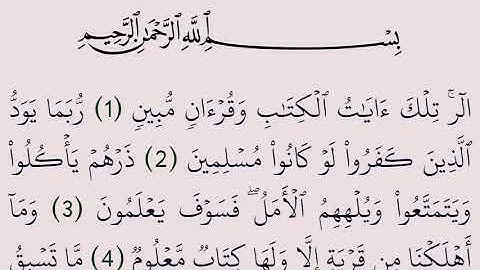 بِسْمِ ٱللَّهِ ٱلرَّحْمَٰنِ ٱلرَّحِيمِ
الٓرۚ تِلۡكَ ءَايَٰتُ ٱلۡكِتَٰبِ وَقُرۡءَانٖ مُّبِينٖ (1) رُّبَمَا يَوَدُّ
ٱلَّذِينَ كَفَرُواْ لَوۡ كَانُواْ مُسۡلِمِينَ (2) ذَرۡهُمۡ يَأۡكُلُواْ
وَيَتَمَتَّعُواْ وَيُلۡهِهِمُ ٱلۡأَمَلُۖ فَسَوۡفَ يَعۡلَمُونَ (3) وَمَآ
أَهۡلَكۡنَا مِن قَرۡيَةٍ إِلَّا وَلَهَا كِتَابٞ مَّعۡلُومٞ (4) مَّا تَسۡبِقُ